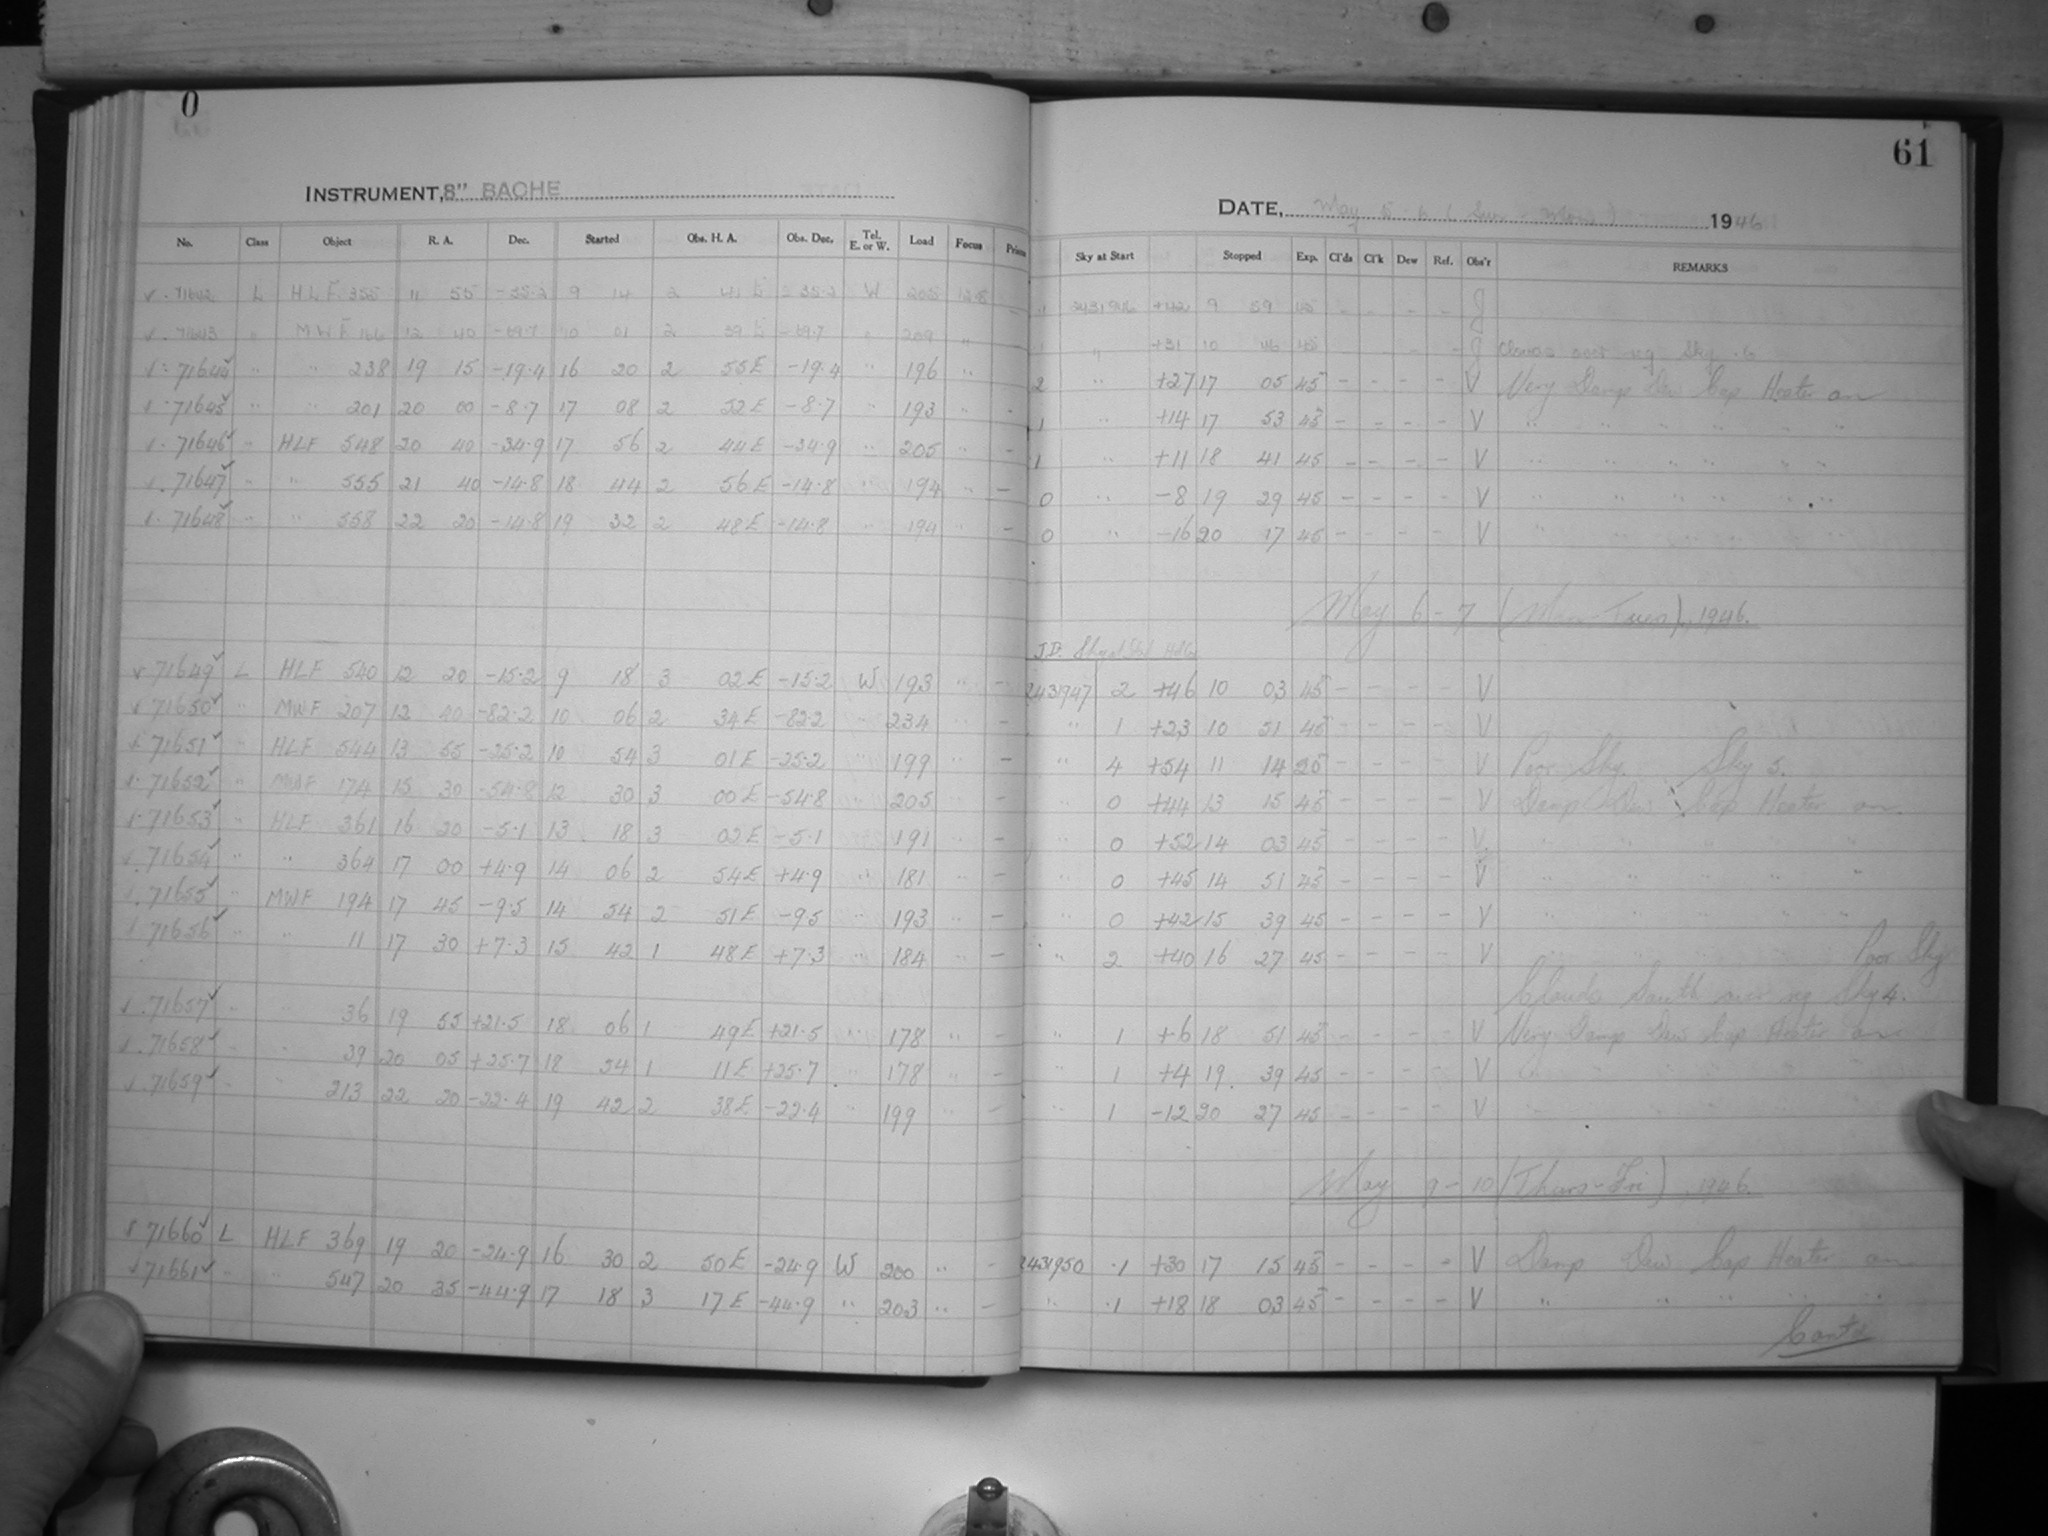 0
61
INSTRUMENT, 8" BACHE
DATE, May 5-6 (Sun-Mon) 1946
No. Class Object R. A. Dec. Started Obs. H. A. Obs. Dec. Tel. E. or W. Load Focus Sky at Start Stopped Exp. Cl'ds Cl'k Dew Ref. Obs'r REMARKS
71642 L HLF 355 11 55 -35.2 9 14 2 41 E -35.2 W 205 12.8 " 2431946 +42 9 59 45 - - - - J
71643 " MWF 166 12 40 -69.7 10 01 2 39 E -69.7 " 209 " " +31 10 46 45 - - J Clouds Sky 6
71644 " " 238 19 15 -19.4 16 20 2 55 E -19.4 " 196 " 2 " +27 17 05 45 - - - - V Very Damp Dew Cap Heater on
71645 " " 201 20 00 -8.7 17 08 2 52 E -8.7 " 193 " - 1 " +14 17 53 45 - - - - V " " " " " "
71646 " HLF 548 20 40 -34.9 17 56 2 44 E -34.9 " 205 " - 1 " +11 18 41 45 - - - - V " " " " " "
71647 " " 555 21 40 -14.8 18 44 2 56 E -14.8 " 194 " - 0 " -8 19 29 45 - - - - V " " " " " "
71648 " " 558 22 20 -14.8 19 32 2 48 E -14.8 " 194 " - 0 " -16 20 17 45 - - - - V " " " " " "
May 6-7 (Mon-Tues), 1946.
J.D. Sky at Start
71649 L HLF 540 12 20 -15.2 9 18 3 02 E -15.2 W 193 " - 2431947 2 +46 10 03 45 - - - - V
71650 " MWF 207 12 40 -82.2 10 06 2 34 E -82.2 " 234 " - " 1 +23 10 51 45 - - - - V
71651 " HLF 544 13 55 -25.2 10 54 3 01 E -25.2 " 199 " - " 4 +54 11 14 20 - - - - V Poor Sky. Sky 5.
71652 " MWF 174 15 30 -54.8 12 30 3 00 E -54.8 " 205 " - " 0 +44 13 15 45 - - - - V Damp Dew Cap Heater on.
71653 " HLF 361 16 20 -5.1 13 18 3 02 E -5.1 " 191 " - " 0 +52 14 03 45 - - - - V " " " " "
71654 " " 364 17 00 +4.9 14 06 2 54 E +4.9 " 181 " - " 0 +45 14 51 45 - - - - V " " " " "
71655 " MWF 194 17 45 -9.5 14 54 2 51 E -9.5 " 193 " - " 0 +42 15 39 45 - - - - V " " " " "
71656 " " 11 17 30 +7.3 15 42 1 48 E +7.3 " 184 " - " 2 +40 16 27 45 - - - - V " " " " " Poor Sky
Clouds South Sky 4.
71657 " " 36 19 55 +21.5 18 06 1 49 E +21.5 " 178 " - " 1 +6 18 51 45 - - - - V Very Damp Dew Cap Heater on
71658 " " 39 20 05 +25.7 18 54 1 11 E +25.7 " 178 " - " 1 +4 19 39 45 - - - - V
71659 " " 213 22 20 -22.4 19 42 2 38 E -22.4 " 199 " - " 1 -12 20 27 45 - - - - V
May 9-10 (Thurs-Fri), 1946.
71660 L HLF 369 19 20 -24.9 16 30 2 50 E -24.9 W 200 " - 2431950 1 +30 17 15 45 - - - - V Damp Dew Cap Heater on
71661 " " 547 20 35 -44.9 17 18 3 17 E -44.9 " 203 " - " 1 +18 18 03 45 - - - - V " " " " "
Contd